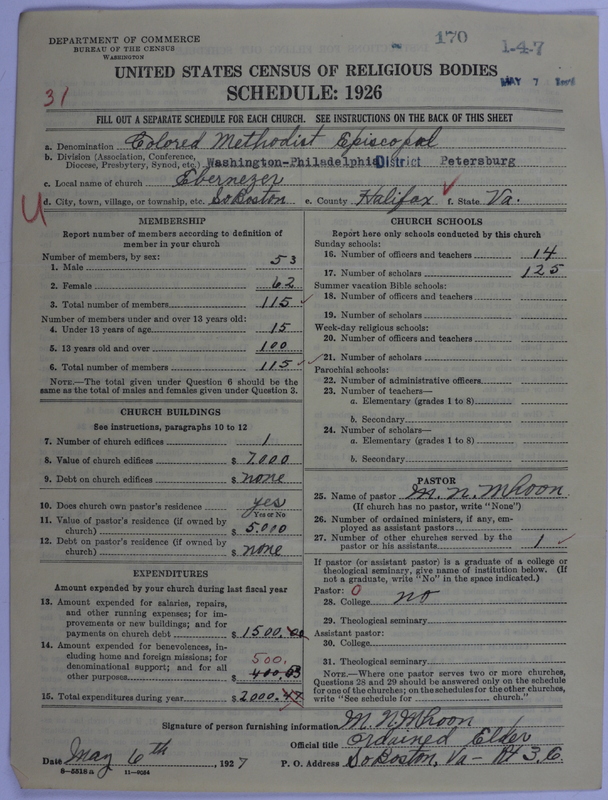 DEPARTMENT OF COMMERCE
BUREAU OF THE CENSUS
WASHINGTON
170
1-4-7
MAY 7
UNITED STATES CENSUS OF RELIGIOUS BODIES
SCHEDULE: 1926
31
FILL OUT A SEPARATE SCHEDULE FOR EACH CHURCH. SEE INSTRUCTIONS ON THE BACK OF THIS SHEET
a. Denomination Colored Methodist Episcopal
b. Division (Association, Conference, Diocese, Presbytery, Synod, etc.) Washington-Philadelphia District Petersburg
c. Local name of church Ebernezer
d. City, town, village, or township, etc. So Boston e. County Halifax f. State Va.
MEMBERSHIP
Report number of members according to definition of
member in your church
Number of members, by sex:
1. Male 53
2. Female 62
3. Total number of members 115
Number of members under and over 13 years old:
4. Under 13 years of age 15
5. 13 years old and over 100
6. Total number of members 115
NOTE.—The total given under Question 6 should be the
same as the total of males and females given under Question 3.
CHURCH BUILDINGS
See instructions, paragraphs 10 to 12
7. Number of church edifices 1
8. Value of church edifices $ 7,000
9. Debt on church edifices $ none
10. Does church own pastor's residence yes
Yes or No
11. Value of pastor's residence (if owned by
church) $ 5,000
12. Debt on pastor's residence (if owned by
church) $ none
EXPENDITURES
Amount expended by your church during last fiscal year
13. Amount expended for salaries, repairs,
and other running expenses; for im-
provements or new buildings; and for
payments on church debt $ 1500.00
14. Amount expended for benevolences, in-
cluding home and foreign missions; for
denominational support; and for all 500.
other purposes $ 400.03
15. Total expenditures during year $ 2000.47
CHURCH SCHOOLS
Report here only schools conducted by this church
Sunday schools:
16. Number of officers and teachers 14
17. Number of scholars 125
Summer vacation Bible schools:
18. Number of officers and teachers
19. Number of scholars
Week-day religious schools:
20. Number of officers and teachers
21. Number of scholars
Parochial schools:
22. Number of administrative officers
23. Number of teachers—
a. Elementary (grades 1 to 8)
b. Secondary
24. Number of scholars—
a. Elementary (grades 1 to 8)
b. Secondary
PASTOR
25. Name of pastor M. N. Mhoon
(If church has no pastor, write "None")
26. Number of ordained ministers, if any, em-
ployed as assistant pastors
27. Number of other churches served by the
pastor or his assistants 1
If pastor (or assistant pastor) is a graduate of a college or
theological seminary, give name of institution below. (If
not a graduate, write "No" in the space indicated.)
Pastor: 0
28. College no
29. Theological seminary
Assistant pastor:
30. College
31. Theological seminary
NOTE.—Where one pastor serves two or more churches,
Questions 28 and 29 should be answered only on the schedule
for one of the churches; on the schedules for the other churches,
write "See schedule for church."
Signature of person furnishing information M. N. Mhoon
Official title Ordained Elder
Date May 6th, 1927 P. O. Address So Boston, Va - Rt 3, 6
8-5518 a 11-9054